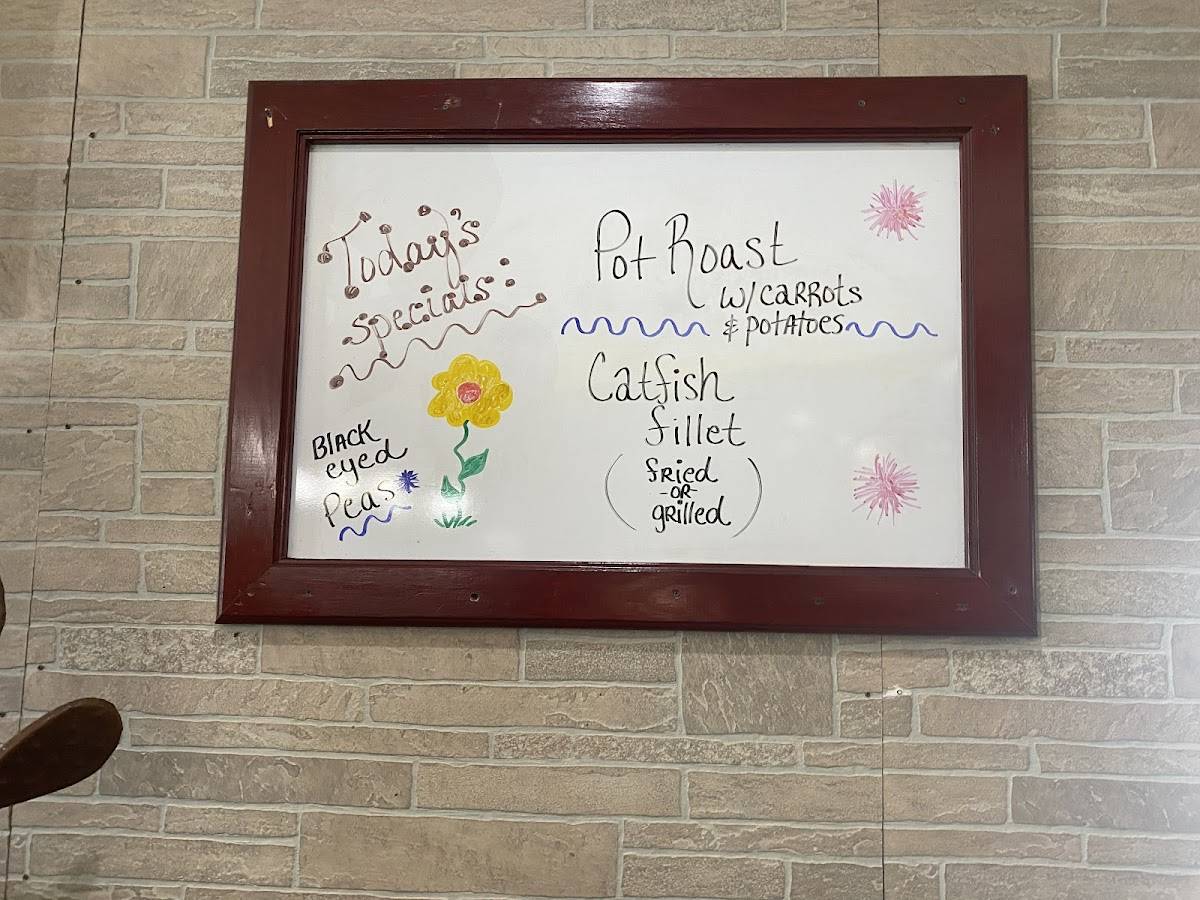 Today's
specials:
Black
eyed
Peas
Pot Roast
w/ carrots
& potatoes
Catfish
fillet
(fried
-OR-
grilled)